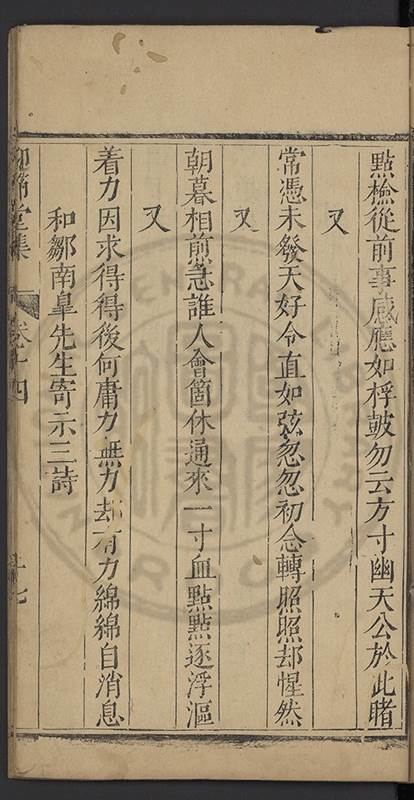 點檢從前事感應如桴皷勿云方寸幽天公於此睹
又
常憑未發天好令直如弦忽忽初念轉照照却惺然
又
朝暮相煎急誰人會箇休通來一寸血點點逐浮漚
又
着力因求得得後何庸力無力却有力綿綿自消息
和鄒南臯先生寄示三詩
堂集
卷十四
十七